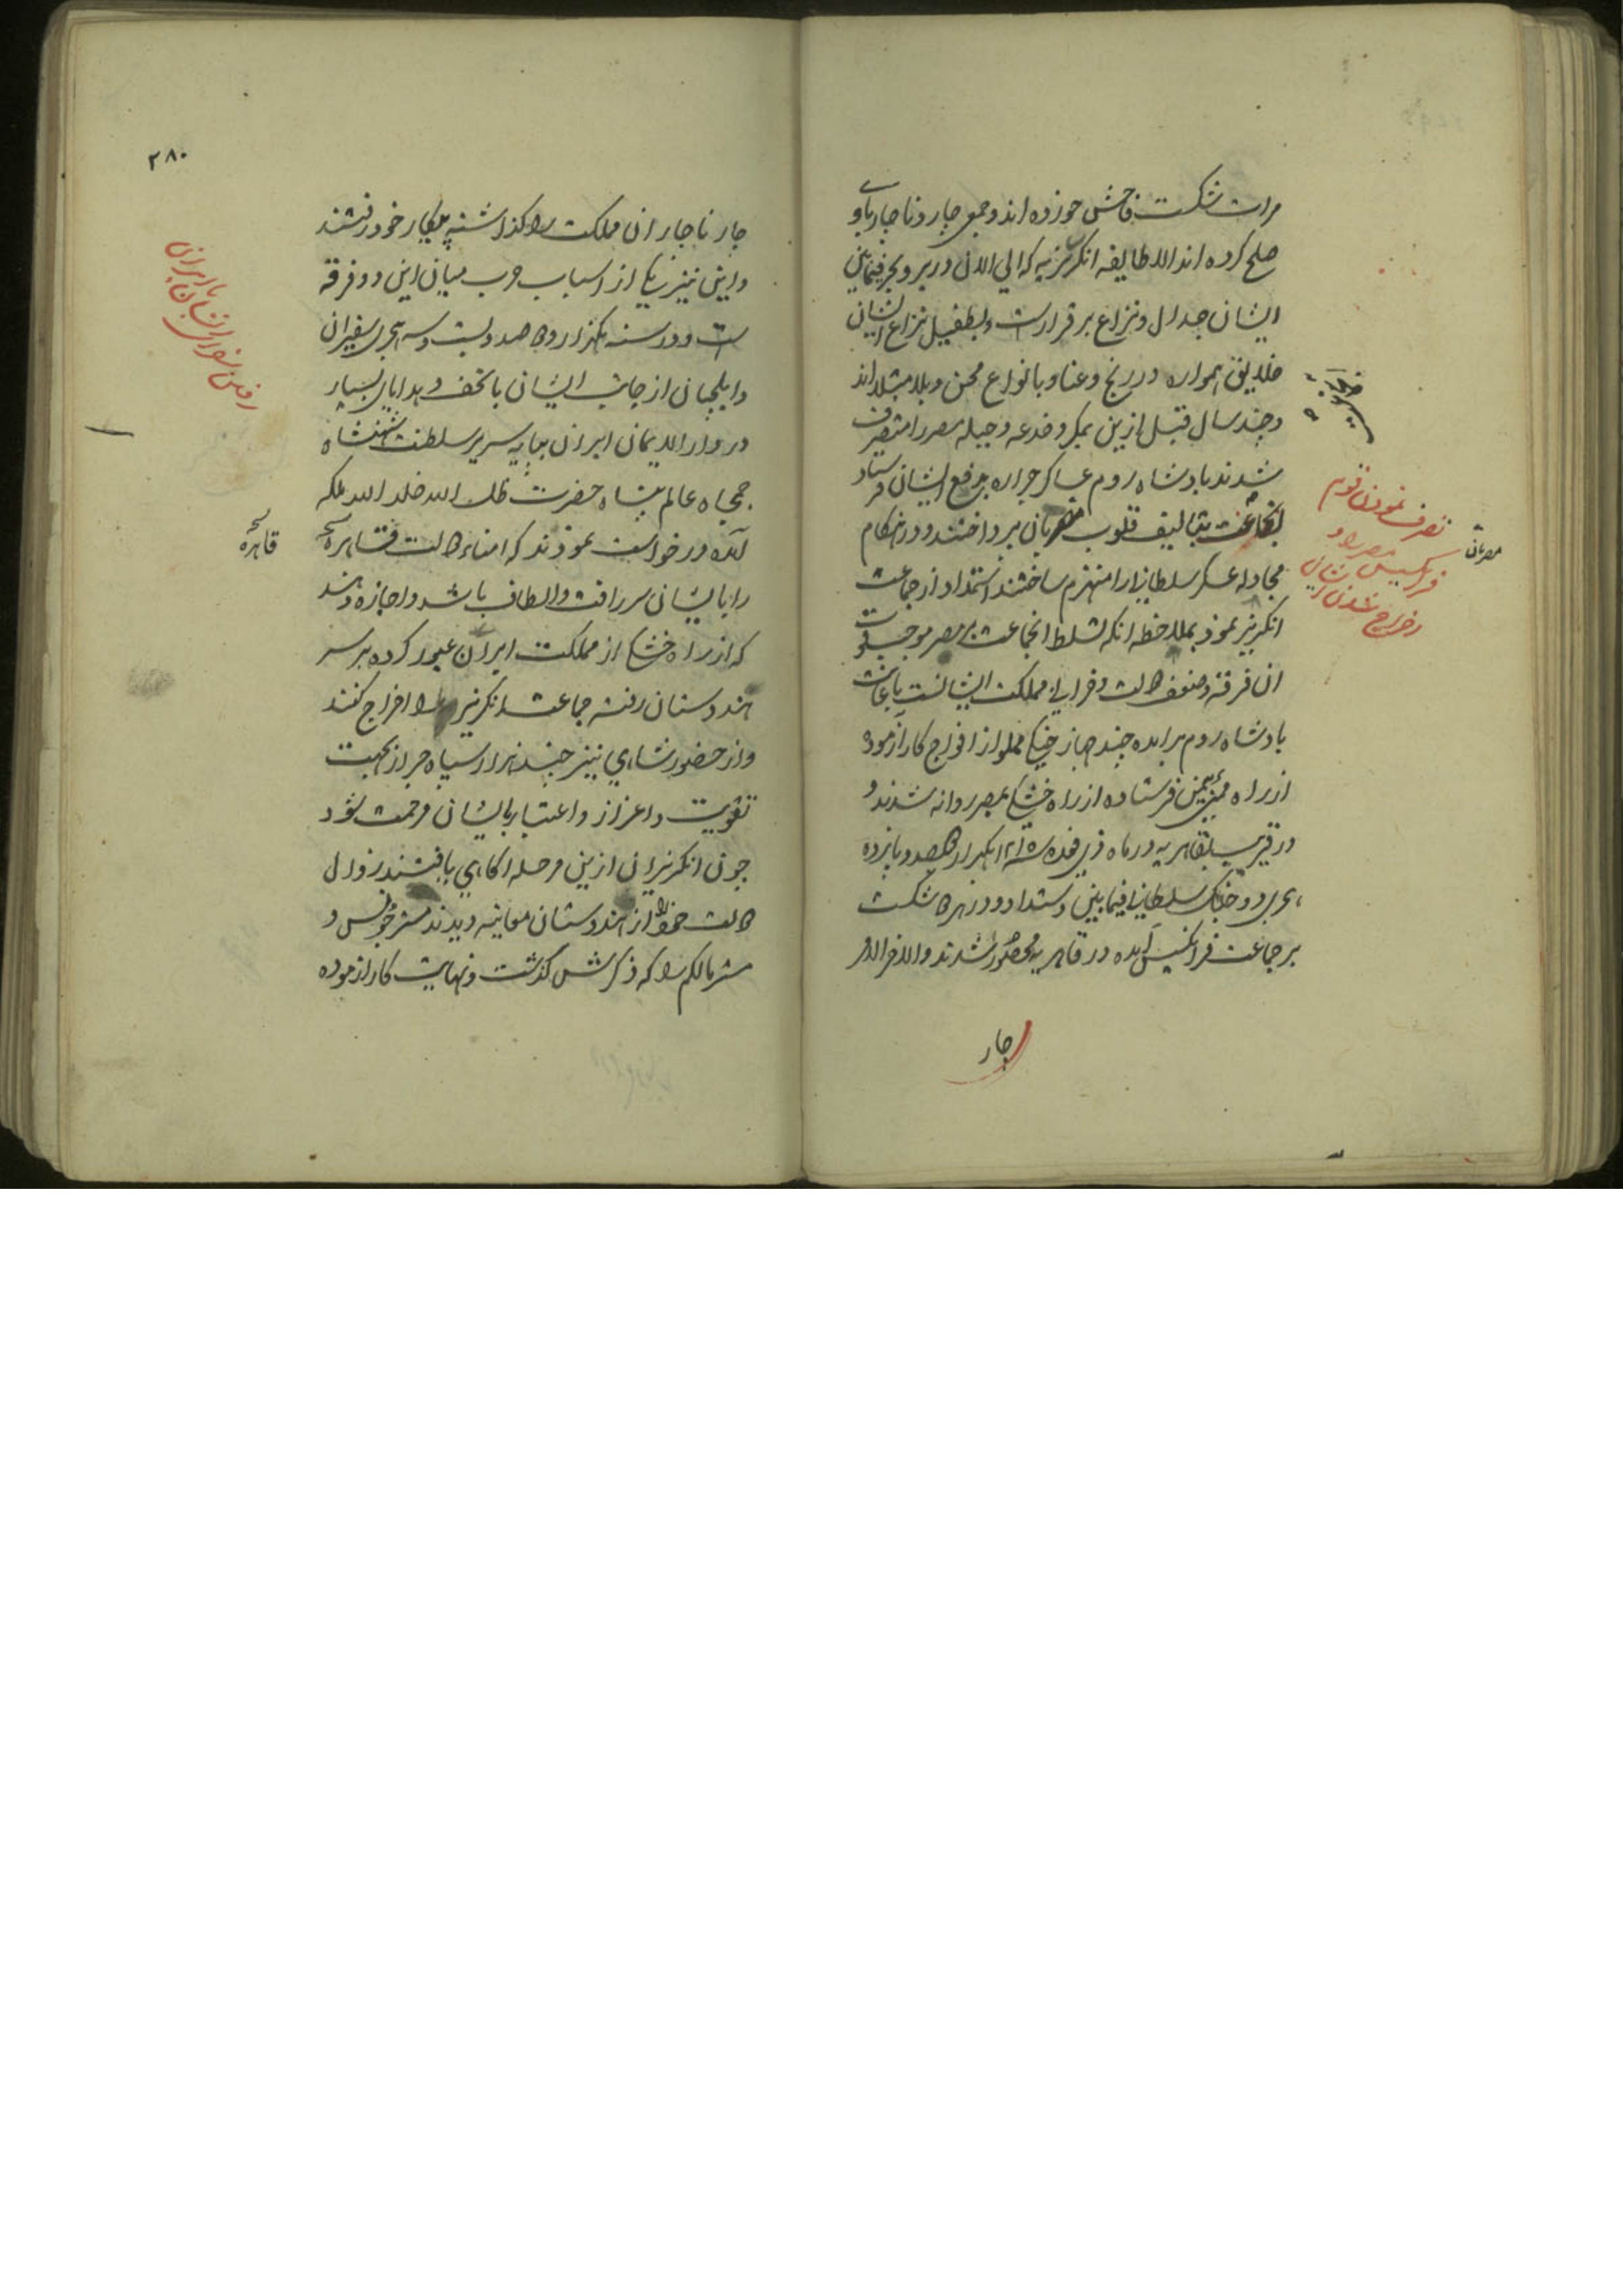 مرات شکست فاحش خورده اند و جمعی چار و ناچار باو
صلح کرده اند الا طایفه انکریزیه که الی الان در بر و بحر فیمابین
ایشان جدال و نزاع برقرارست و بطفیل نزاع ایشان
خلایق همواره در رنج و عنا و بانواع محن و بلا مبتلا اند
و چند سال قبل ازین بمکر و خدعه و حیله مصر را متصرف
شدند بادشاه روم عساکر جراره بدفع ایشان فرستاد
انجماعت بتالیف قلوب مصریان پرداختند و در هنکام
مجادله عسکر سلطانی را منهزم ساختند استمداد از جماعت
انکریز نمود بملاحظه انکه تسلط انجماعت بر مصر موجب قوت
ان فرقه و ضعف دولت و خرابی مملکت ایشانست باعانت
بادشاه روم برامده چند جهاز جنکی مملو از افواج کارآزموده
از راه فرستاده از راه خشکی بمصر روانه شدند و
در قریب بقاهریه در ماه ذی قعده سنه ۱۲۱۵ یکهزار و دوصد و پانزده
هجری دو جنک سلطانی فیمابین دستداد و در هر دو شکست
بر جماعت فرانسیس آمده در قاهریه محصور شدند و الاخر الامر
چار
مصریان
تصرف نمودن قوم
فرانسیس مصر را و
اخراج شدن ایشان
۲۸۰
چار ناچار ان مملکت را کذاشته پی کار خود رفتند
و این نیز یکی از اسباب حرب میان این دو فرقه
است و در سنه یکهزار و دوصد و بیست و سه هجری سفیران
و ایلچیان از جانب ایشان با تحف و هدایای بسیار
در دار الایمان ایران بپایه سریر سلطنت شهنشاه
جمجاه عالم پناه حضرت ظل الله خلد الله ملکه
آمده درخواست نمودند که امناء دولت قاهره
را با ایشان سر رافت و الطاف باشد و اجازه دهند
که از راه خشکی از مملکت ایران عبور کرده بر سر
هندوستان رفته جماعت انکریز را اخراج کنند
و از حضور شاهی نیز چند هزار سپاه جرار بجهت
تقویت و اعزاز و اعتبار ایشان مرحمت شود
چون انکریزان ازین مرحله آکاهی یافتند زوال
دولت خود را از هندوستان معاینه دیدند مستر جونس و
مستر مالکم را که ذکرش کذشت و نهایت کارآزموده
قاهره
رفتن سفرای ایشان بایران